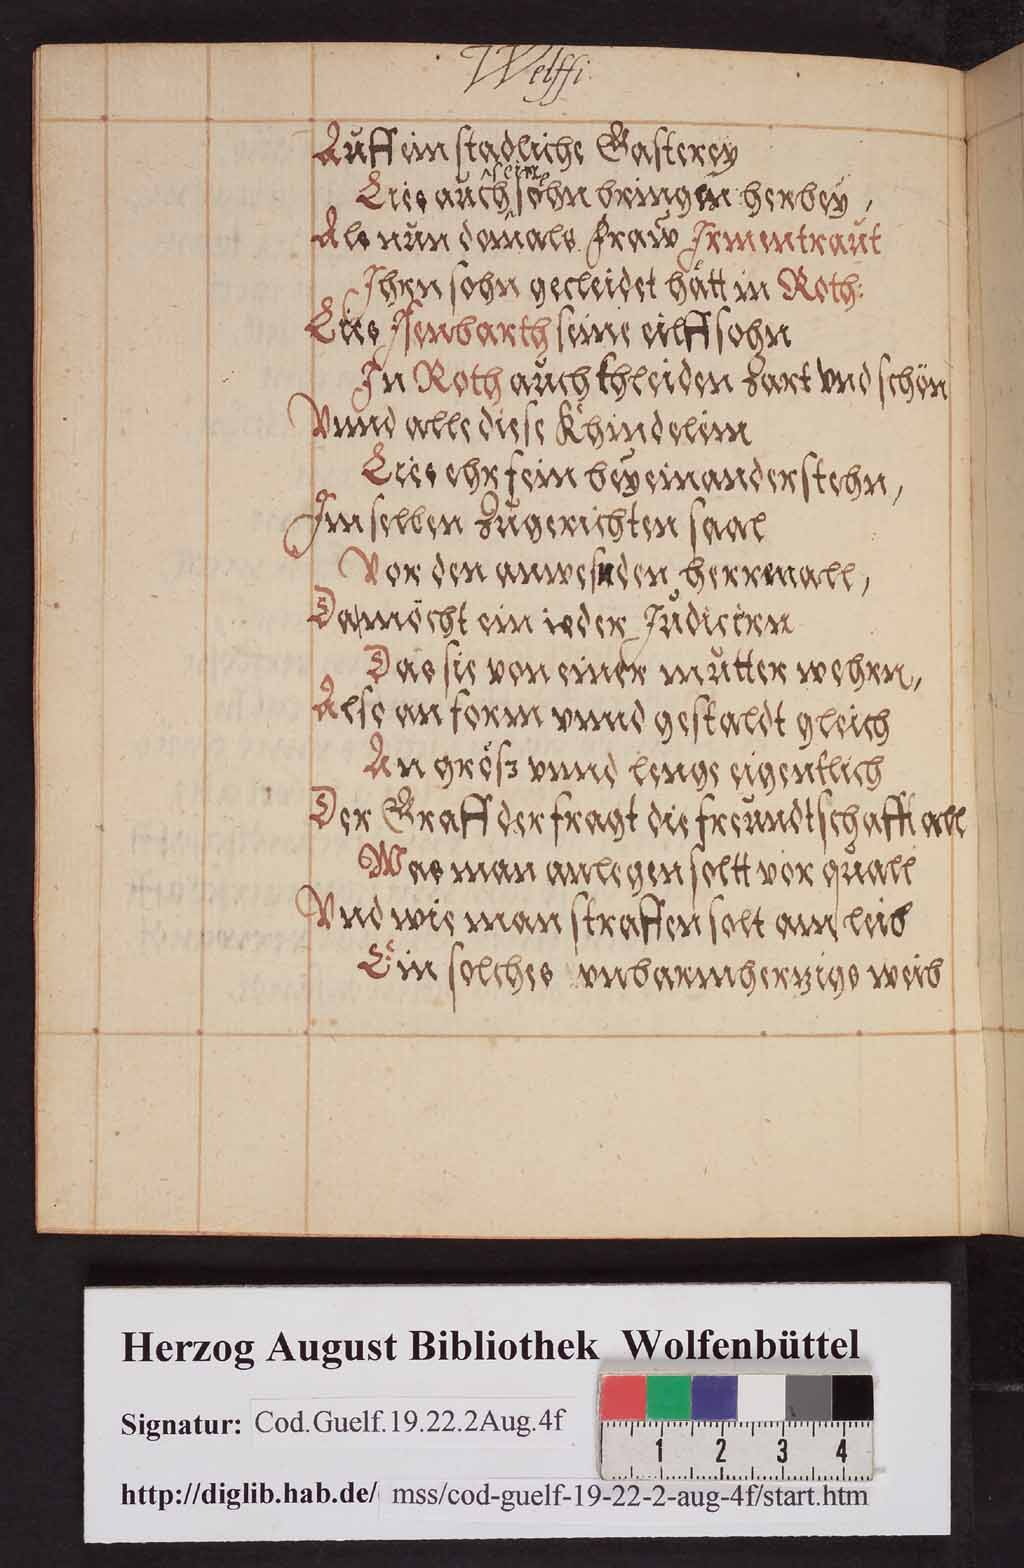 Welffi
Auff ein stadliche Gasterey
Lies auch sein söhn bringen herbey,
Als nun domals Fraw Irmentraut
Ihrn sohn gecleidet hätt in Roth:
Lies Isenbarth seine eilff sohn
In Roth auch khleiden zart vnd schön
Vnnd alle diese Khindelein
Lies ehr fein bey einander stehn,
Im selben zugerichten saal
Vor den anwesnden herrn all,
Da möcht ein ieder Iudiciern
Das sie von einer mutter wehrn,
Also an form vnnd gestaldt gleich
An größ vnnd lenge eigentlich
Der Graff der fragt die freundtschafft all
Was man anlegen soltt vor quall
Vnd wie man straffen solt am leib
Ein solches vnbarmherzigs weib
Herzog August Bibliothek Wolfenbüttel
Signatur: Cod.Guelf.19.22.2Aug.4f
1 2 3 4
http://diglib.hab.de/ mss/cod-guelf-19-22-2-aug-4f/start.htm